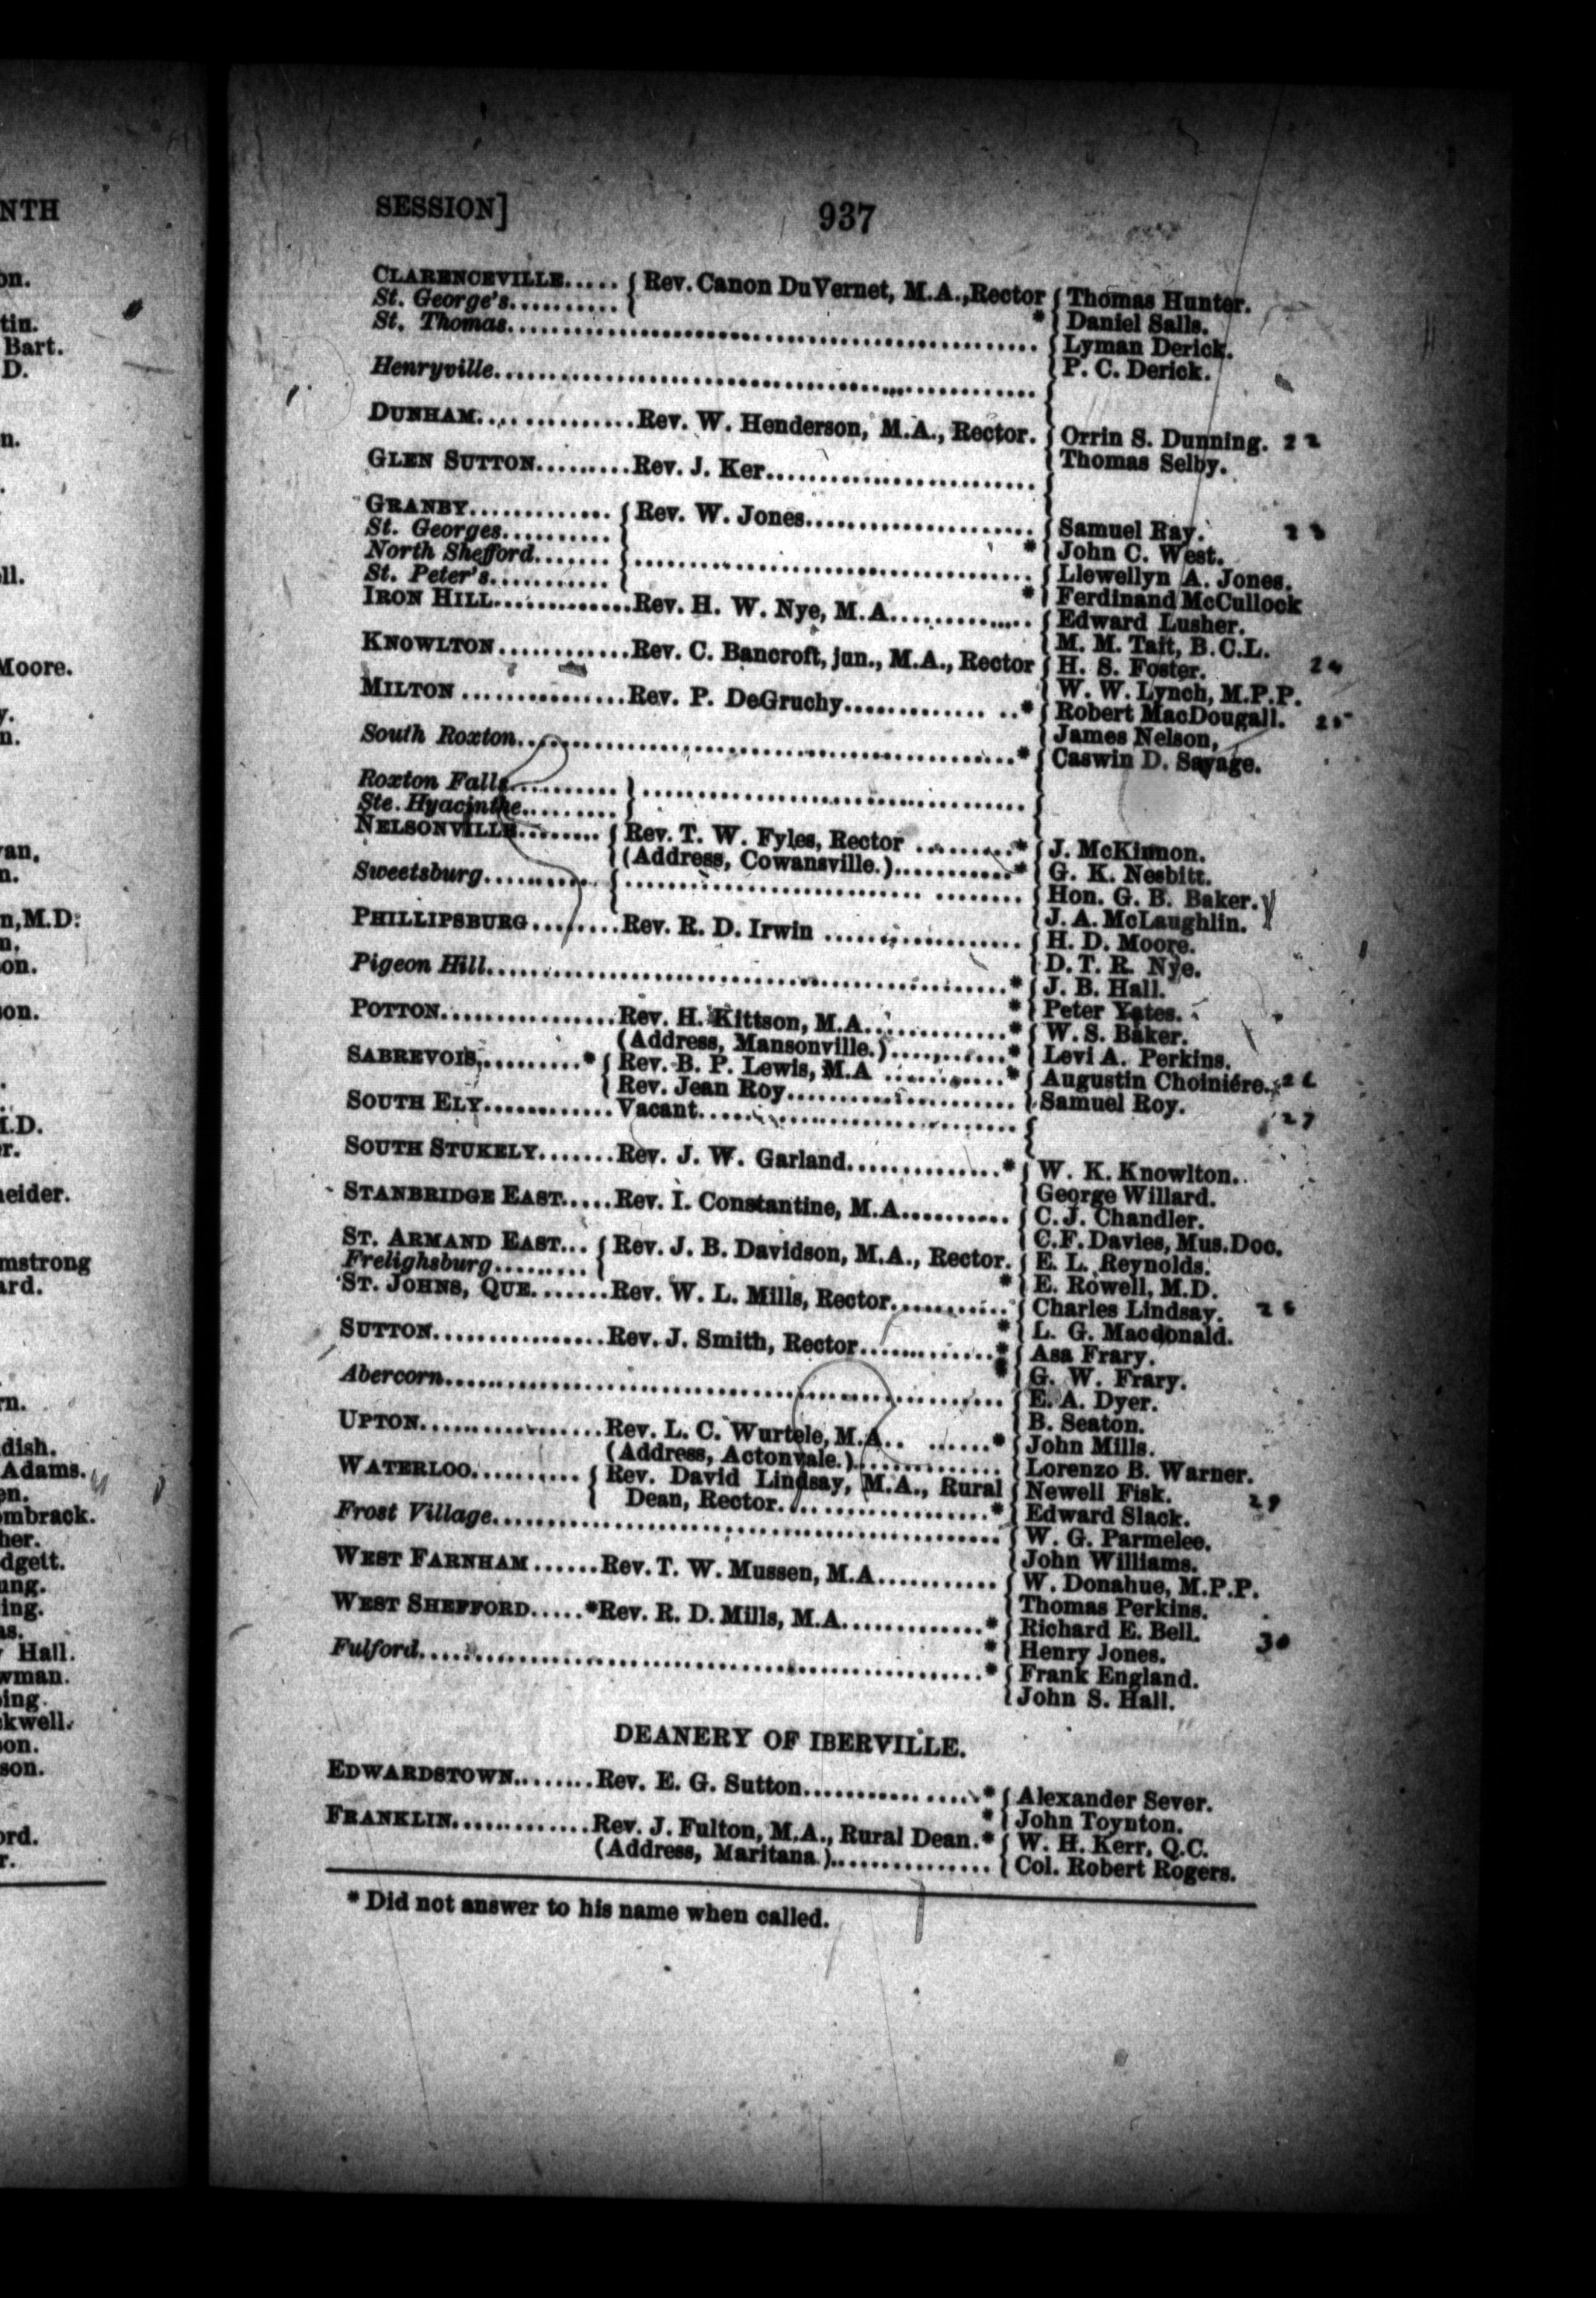 SESSION] 937
CLARENCEVILLE..... { Rev. Canon DuVernet, M.A., Rector { Thomas Hunter.
St. George's.......... { * { Daniel Salls.
St. Thomas.......... { Lyman Derick.
{ P. C. Derick.
Henryville.......... {
DUNHAM.............Rev. W. Henderson, M.A., Rector. { Orrin S. Dunning. 22
{ Thomas Selby.
GLEN SUTTON.........Rev. J. Ker.......... {
GRANBY............. { Rev. W. Jones.......... { Samuel Ray.
St. Georges.......... { * { John C. West.
North Shefford....... { .......... { Llewellyn A. Jones.
St. Peter's........... { * { Ferdinand McCullock
IRON HILL.............Rev. H. W. Nye, M.A.............. { Edward Lusher.
{ M. M. Tait, B.C.L.
KNOWLTON............Rev. C. Bancroft, jun., M.A., Rector { H. S. Foster. 24
{ W. W. Lynch, M.P.P.
MILTON ...............Rev. P. DeGruchy............. ..* { Robert MacDougall. 25
{ James Nelson,
South Roxton..........* { Caswin D. Savage.
Roxton Falls.......... } .......... {
Ste. Hyacinthe......... }
NELSONVILLE........ { Rev. T. W. Fyles, Rector .........* { J. McKinnon.
{ (Address, Cowansville.)...........* { G. K. Nesbitt.
Sweetsburg.......... { .......... { Hon. G. B. Baker.
{ J. A. McLaughlin.
PHILLIPSBURG........Rev. R. D. Irwin .......... { H. D. Moore.
{ D. T. R. Nye.
Pigeon Hill..........* { J. B. Hall.
* { Peter Yates.
POTTON................Rev. H. Kittson, M.A.............* { W. S. Baker.
(Address, Mansonville.)...........* { Levi A. Perkins.
SABREVOIS,.........* { Rev. B. P. Lewis, M.A ...........* { Augustin Choiniére. 26
{ Rev. Jean Roy.......... { Samuel Roy.
SOUTH ELY............Vacant.......... { 27
SOUTH STUKELY.......Rev. J. W. Garland..............* { W. K. Knowlton.
{ George Willard.
STANBRIDGE EAST.....Rev. I. Constantine, M.A.......... { C. J. Chandler.
{ C.F. Davies, Mus.Doc.
ST. ARMAND EAST... { Rev. J. B. Davidson, M.A., Rector. { E. L. Reynolds.
Frelighsburg......... { * { E. Rowell, M.D.
ST. JOHNS, QUE.......Rev. W. L. Mills, Rector........... { Charles Lindsay.
* { L. G. Macdonald.
SUTTON...............Rev. J. Smith, Rector.............* { Asa Frary.
* { G. W. Frary.
Abercorn.......... { E. A. Dyer.
{ B. Seaton.
UPTON.................Rev. L. C. Wurtele, M.A.. ......* { John Mills.
(Address, Actonvale.).............. { Lorenzo B. Warner.
WATERLOO.......... { Rev. David Lindsay, M.A., Rural { Newell Fisk. 29
{ Dean, Rector..........* { Edward Slack.
Frost Village.......... { W. G. Parmelee.
{ John Williams.
WEST FARNHAM ......Rev. T. W. Mussen, M.A........... { W. Donahue, M.P.P.
{ Thomas Perkins.
WEST SHEFFORD.....*Rev. R. D. Mills, M.A.............* { Richard E. Bell. 30
* { Henry Jones.
Fulford..........* { Frank England.
{ John S. Hall.
DEANERY OF IBERVILLE.
EDWARDSTOWN........Rev. E. G. Sutton..........* { Alexander Sever.
* { John Toynton.
FRANKLIN.............Rev. J. Fulton, M.A., Rural Dean.* { W. H. Kerr, Q.C.
(Address, Maritana.).............. { Col. Robert Rogers.
* Did not answer to his name when called.
NTH
on.
tin.
Bart.
D.
n.
ll.
Moore.
y.
n.
van,
n.
n, M.D.
n.
on.
son.
I.D.
r.
neider.
mstrong
ard.
rn.
dish.
Adams.
en.
mbrack.
her.
dgett.
ung.
ing.
as.
Hall.
wman.
ping.
kwell.
on.
son.
ord.
r.